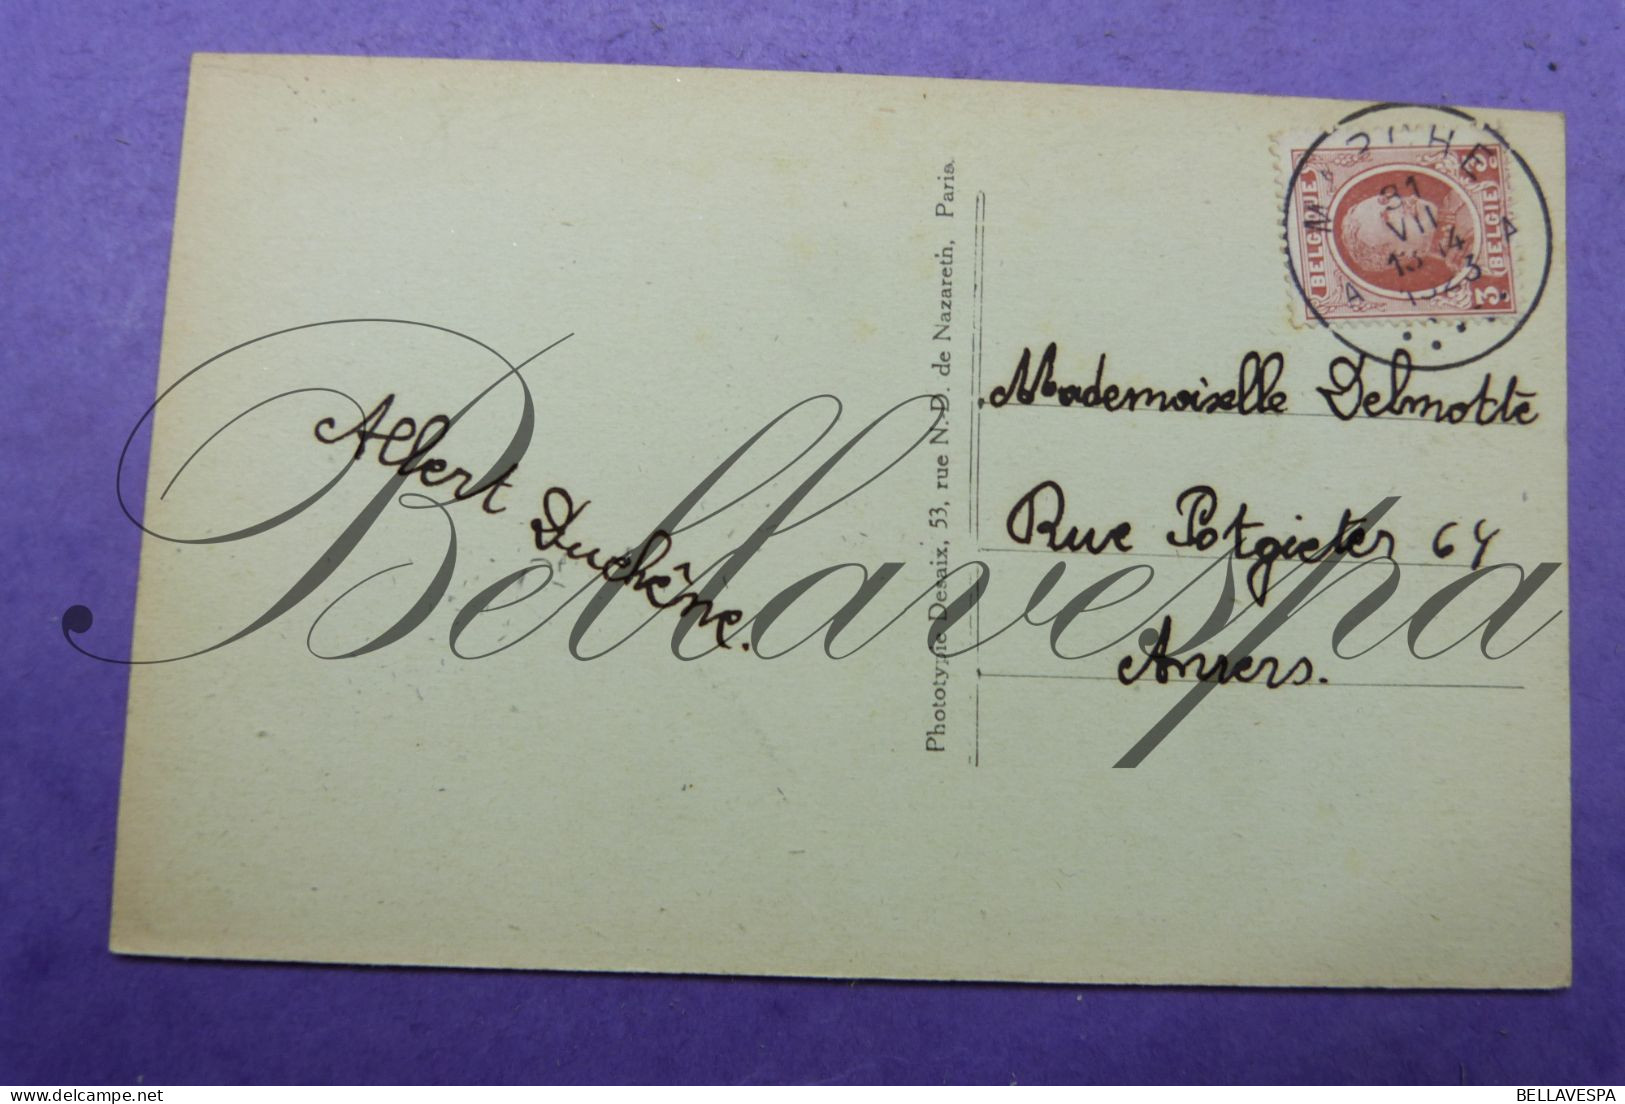 Albert Duchêne.
Phototypie Desaix, 53, rue N.-D. de Nazareth, Paris.
BELGIQUE
BELGIE
3
31
VII
13-14
1923
A A
Mademoiselle Delmotte
Rue Potgieter 64
Anvers.
Bellavespa
BELLAVESPA